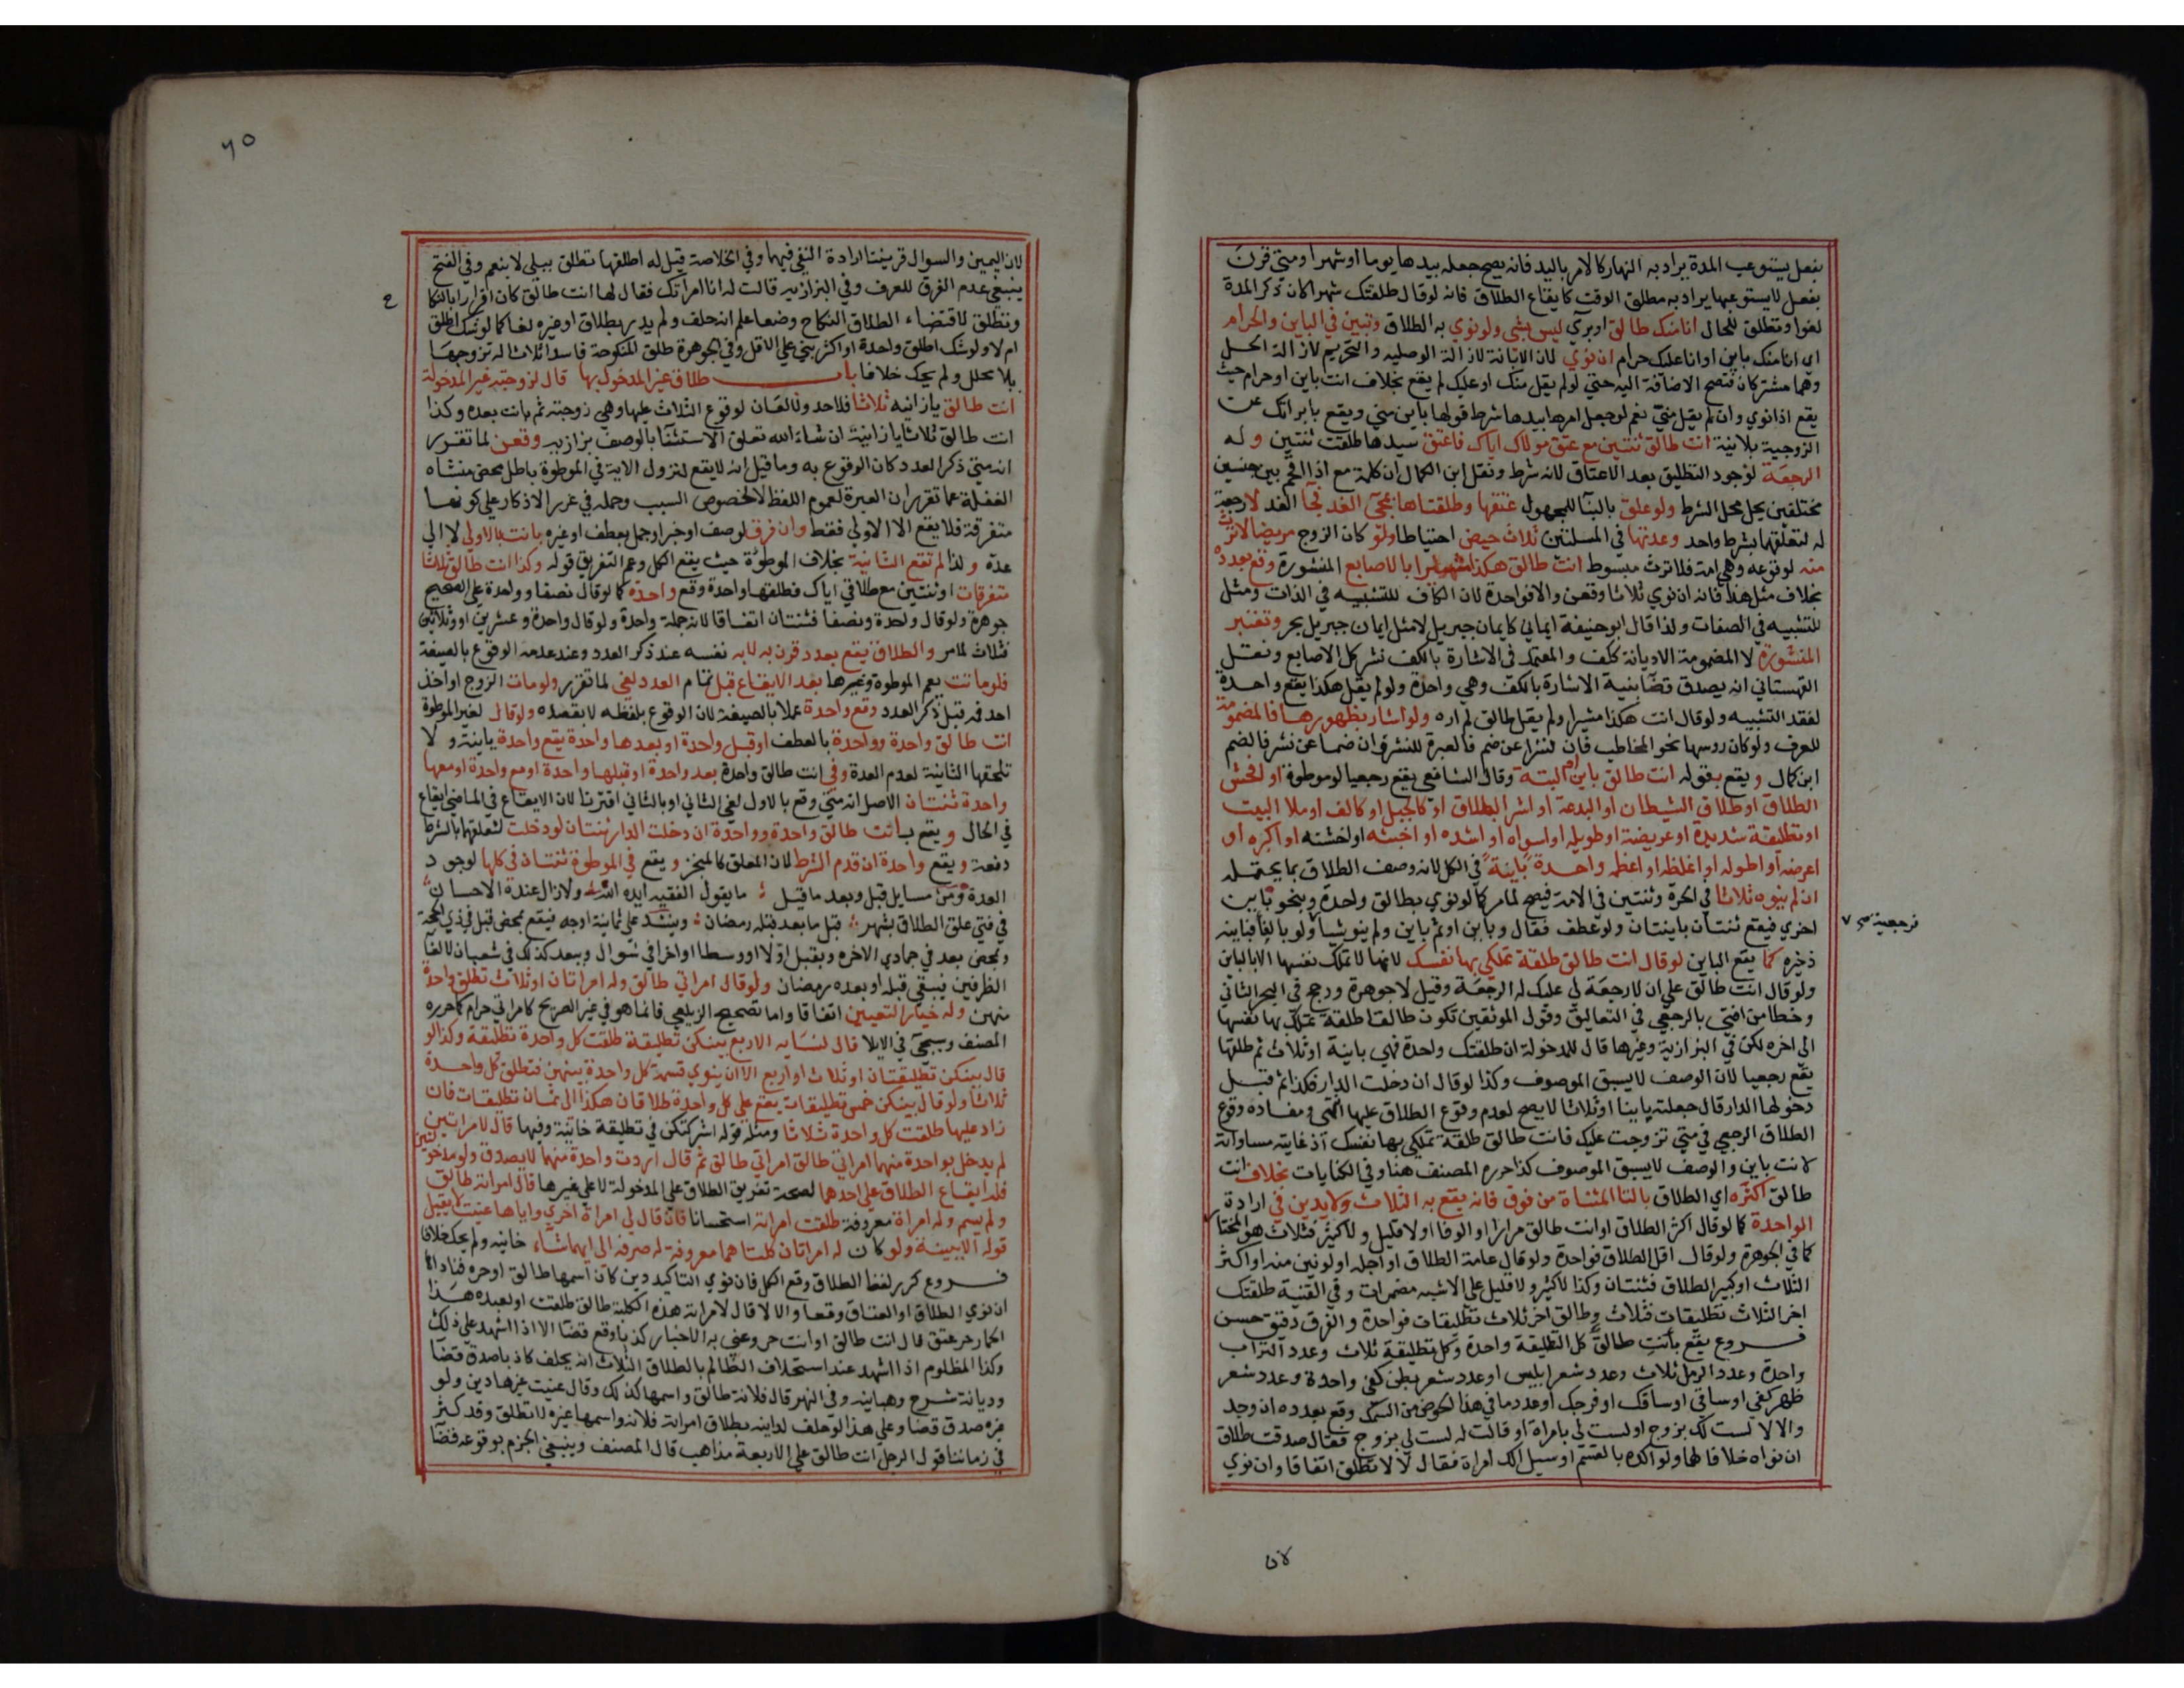 بفعل يستوعب المدة يراد به النهار كالامر باليد فانه يصح جعله بيدها يوما او شهرا ومتي قرن
بفعل لا يستوعبها يراد به مطلق الوقت كايقاع الطلاق فانه لو قال طلقتك شهرا كان ذكر المدة
لغوا وتطلق للحال انا منك طالق او بري ليس بشي ولو نوي به الطلاق وتبين في الباين والحرام
اي انا منك باين او انا عليك حرام ان نوي لان الابانة لازالة الوصلية والتحريم لازالة الحل
وهما مشتركان فتصح الاضافة اليه حتي لو لم يقل منك او عليك لم يقع بخلاف انت باين او حرام حيث
يقع اذا نوي وان لم يقل مني نعم لو جعل امرها بيدها شرط قولها باين مني ويقع بابراتك عن
الزوجية بلا نية انت طالق ثنتين مع عتق مولاك اياك فاعتق سيدها طلقت ثنتين وله
الرجعة لوجود التطليق بعد الاعتاق لانه شرط ونقل ابن الكمال ان كلمة مع اذا اقحم بين جنسين
مختلفين يحل محل الشرط ولو علق بالبنا للمجهول عتقها وطلقتاها بمجي الغد فجا الغد لا رجعة
له لتعلقهما بشرط واحد وعدتها في المسلتين ثلاث حيض احتياطا ولو كان الزوج مريضا لا ترث
منه لوقوعه وهي امة فلا ترث مبسوط انت طالق هكذا مشيرا بالاصابع المنشورة وقع بعدده
بخلاف مثل هذا فانه ان نوي ثلاثا وقعن والا فواحدة لان الكاف للتشبيه في الذات ومثل
للتشبيه في الصفات ولذا قال ابو حنيفة ايماني كايمان جبريل لا مثل ايمان جبريل بحر وتعتبر
المنشورة لا المضمومة الا ديانة ككف والمعتمد في الاشارة بالكف نشر كل الاصابع ونقل
القهستاني انه يصدق قضا بنية الاشارة بالكف وهي واحدة ولو لم يقل هكذا يقع واحدة
لفقد التشبيه ولو قال انت هكذا مشيرا ولم يقل طالق لم اره ولو اشار بظهورها فالمضمومة
للعرف ولو كان روسها نحو المخاطب فان نشرا عن ضم فالعبرة للنشر وان ضما عن نشر فالضم
ابن كمال ويقع بقوله انت طالق باين او البتة وقال الشافعي يقع رجعيا لو موطوة او افحش
الطلاق او طلاق الشيطان او البدعة او اشر الطلاق او كالجبل او كالف او ملا البيت
او تطليقة شديدة او عريضة او طويلة او اسواه او اشده او اخبثه او اخشنه او اكبره او
اعرضه او اطوله او اغلظه او اعظمه واحدة باينة في الكل لانه وصف الطلاق بما يحتمله
ان لم ينوه ثلاثا في الحرة وثنتين في الامة فيصح لما مر كما لو نوي بطالق واحدة وبنحو باين
اخري فيقع ثنتان باينتان ولو عطف فقال وباين او ثم باين ولم ينو شيا
فرجعية صح ٧
ولو بالفا فباينة
ذخيره كما يقع الباين لو قال انت طالق طلقة تملكي بها نفسك لانها لا تملك نفسها الا بالباين
ولو قال انت طالق علي ان لا رجعة لي عليك له الرجعة وقيل لا جوهرة ورجح في البحر الثاني
وخطا من افتي بالرجعي في التعاليق وقول الموثقين تكون طالقا طلقة تملك بها نفسها
الي اخره لكن في البزازية وغيرها قال للمدخولة ان طلقتك واحدة فهي باينة او ثلاث ثم طلقها
يقع رجعيا لان الوصف لا يسبق الموصوف وكذا لو قال ان دخلت الدار فكذا ثم قبل
دخولها الدار قال جعلته باينا او ثلاثا لا يصح لعدم وقوع الطلاق عليها انتهي ومفاده وقوع
الطلاق الرجعي في متي تزوجت عليك فانت طالق طلقة تملكي بها نفسك اذ غايته مساواته
لانت باين والوصف لا يسبق الموصوف كذا حرره المصنف هنا وفي الكنايات بخلاف انت
طالق اكثره اي الطلاق بالتا المثناة من فوق فانه يقع به الثلاث ولا يدين في ارادة
الواحدة كما لو قال اكثر الطلاق او انت طالق مرارا او الوفا او لا قليل ولا كثير فثلاث هو المختار
كما في الجوهرة ولو قال اقل الطلاق فواحدة ولو قال عامة الطلاق او اجله او لونين منه او اكثر
الثلاث او كبير الطلاق فثنتان وكذا لا كثير ولا قليل علي الاشبه مضمرات وفي القنية طلقتك
اخر الثلاث تطليقات فثلاث وطالق اخر ثلاث تطليقات فواحدة والفرق دقيق حسن
فروع يقع بانت طالق كل التطليقة واحدة وكل تطليقة ثلاث وعدد التراب
واحدة وعدد الرمل ثلاث وعدد شعر ابليس او عدد شعر بطن كفي واحدة وعدد شعر
ظهر كفي او ساقي او ساقك او فرجك او عدد ما في هذا الحوض من السمك وقع بعدده ان وجد
والا لا لست لك بزوج او لست لي بامراة او قالت له لست لي بزوج فقال صدقت طلاق
ان نواه خلافا لهما ولو اكده بالقسم او سيل الك امراة فقال لا لا تطلق اتفاقا وان نوي
لان
٦٥
لان اليمين والسوال قرينتا ارادة النفي فيهما وفي الخلاصة قيل له اطلقتها تطلق ببلي لا بنعم وفي الفتح
ينبغي عدم الفرق للعرف وفي البزازية قالت له انا امراتك فقال لها انت طالق كان اقرارا بالنكاح
وتطلق لاقتضاء الطلاق النكاح وضعا علم انه حلف ولم يدر بطلاق او غيره لغا كما لو شك اطلق
ام لا ولو شك اطلق واحدة او اكثر بني علي الاقل وفي الجوهرة طلق المنكوحة فاسدا ثلاثا له تزوجها
بلا محلل ولم يحك خلافا باب طلاق غير المدخول بها قال لزوجته غير المدخولة
انت طالق يا زانية ثلاثا فلا حد ولا لعان لوقوع الثلاث عليها وهي زوجته ثم بانت بعده وكذا
انت طالق ثلاثا يا زانية ان شاء الله تعلق الاستثنا بالوصف بزازية وقعن لما تقرر
انه متي ذكر العدد كان الوقوع به وما قيل انه لا يقع لنزول الاية في الموطوة باطل محض منشاه
الغفلة عما تقرر ان العبرة لعموم اللفظ لا لخصوص السبب وحمله في غرر الاذكار علي كونها
متفرقة فلا يقع الا الاولي فقط وان فرق لوصف او خبر او جمل بعطف او غيره بانت بالاولي لا الي
عدة ولذا لم تقع الثانية بخلاف الموطوة حيث يقع الكل وعم التفريق قوله وكذا انت طالق ثلاثا
متفرقات او ثنتين مع طلاقي اياك فطلقها واحدة وقع واحدة كما لو قال نصفا وواحدة علي الصحيح
جوهرة ولو قال واحدة ونصفا فثنتان اتفاقا لانه جملة واحدة ولو قال واحدة وعشرين او وثلاثين
فثلاث لما مر والطلاق يقع بعدد قرن به لا به نفسه عند ذكر العدد وعند عدمه الوقوع بالصيغة
فلو ماتت يعم الموطوة وغيرها بعد الايقاع قبل تمام العدد لغي لما تقرر ولو مات الزوج او اخذ
احد فمه قبل ذكر العدد وقع واحدة عملا بالصيغة لان الوقوع بلفظه لا بقصده ولو قال لغير الموطوة
انت طالق واحدة وواحدة بالعطف او قبل واحدة او بعدها واحدة يقع واحدة باينة ولا
تلحقها الثانية لعدم العدة وفي انت طالق واحدة بعد واحدة او قبلها واحدة او مع واحدة او معها
واحدة ثنتان الاصل انه متي وقع بالاول لغي الثاني او بالثاني اقترنا لان الايقاع في الماضي ايقاع
في الحال ويقع بانت طالق واحدة وواحدة ان دخلت الدار ثنتان لو دخلت لتعلقهما بالشرط
دفعة ويقع واحدة ان قدم الشرط لان المعلق كالمنجز ويقع في الموطوة ثنتان في كلها لوجود
العدة ومن مسايل قبل وبعد ما قيل ما يقول الفقيه ايده الله ولا زال عنده الاحسان
في فتي علق الطلاق بشهر قبل ما بعد قبله رمضان وينشد علي ثمانية اوجه فيقع بمحض قبل في ذي الحجة
وبمحض بعد في جمادي الاخره وبقبل اولا او وسطا او اخرا في شوال وببعد كذلك في شعبان لالغا
الظرفين فيبقي قبله او بعده رمضان ولو قال امراتي طالق وله امراتان او ثلاث تطلق واحدة
منهن وله خيار التعيين اتفاقا واما تصحيح الزيلعي فانما هو في غير الصريح كامراتي حرام كما حرره
المصنف وسيجي في الايلا قال لنسايه الاربع بينكن تطليقة طلقت كل واحدة تطليقة وكذا لو
قال بينكن تطليقتان او ثلاث او اربع الا ان ينوي قسمة كل واحدة بينهن فتطلق كل واحدة
ثلاثا ولو قال بينكن خمس تطليقات يقع علي كل واحدة طلاقان هكذا الي ثمان تطليقات فان
زاد عليها طلقت كل واحدة ثلاثا ومثله قوله اشركتكن في تطليقة خانية وفيها قال لامراتين
لم يدخل بواحدة منهما امراتي طالق امراتي طالق ثم قال اردت واحدة منهما لا يصدق ولو مدخولتين
فله ايقاع الطلاق علي احدهما لصحة تفريق الطلاق علي المدخولة لا علي غيرها قال امراته طالق
ولم يسم وله امراة معروفة طلقت امراته استحسانا فان قال لي امراة اخري واياها عنيت لا يقبل
قوله الا ببينة ولو كان له امراتان كلتاهما معروفة له صرفه الي ايهما شاء خانيه ولم يحك خلافا
فروع كرر لفظ الطلاق وقع الكل فان نوي التاكيد دين كان اسمها طالق او حره فناداها
ان نوي الطلاق او العتاق وقعا والا لا قال لامراته هذه الكلبة طالق طلقت او لعبده هذا
الحمار حر عتق قال انت طالق او انت حر وعني به الاخبار كذبا وقع قضا الا اذا اشهد علي ذلك
وكذا المظلوم اذا اشهد عند استحلاف الظالم بالطلاق الثلاث انه يحلف كاذبا صدق قضا
وديانة شرح وهبانية وفي النهر قال فلانة طالق واسمها كذلك وقال عنيت غيرها دين ولو
غيره صدق قضا وعلي هذا لو حلف لداينه بطلاق امراته فلانة واسمها غيره لا تطلق وقد كثر
في زماننا قول الرجل انت طالق علي الاربعة مذاهب قال المصنف وينبغي الجزم بوقوعه قضا